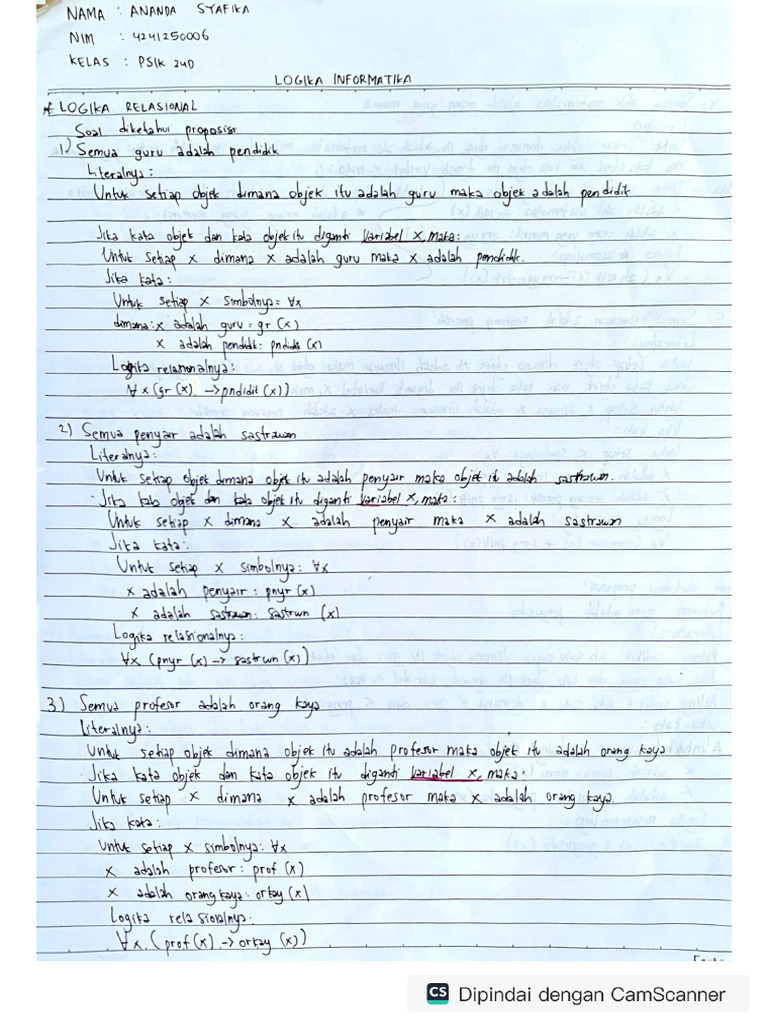 NAMA : ANANDA SYAFIKA
NIM : 4241250006
KELAS : PSIK 24D
LOGIKA INFORMATIKA
* LOGIKA RELASIONAL
Soal diketahui proposisi
1) Semua guru adalah pendidik
Literalnya :
Untuk setiap objek dimana objek itu adalah guru maka objek adalah pendidik
Jika kata objek dan kata objek itu diganti variabel x, maka:
Untuk setiap x dimana x adalah guru maka x adalah pendidik.
Jika kata:
Untuk setiap x simbolnya = ∀x
dimana: x adalah guru = gr (x)
x adalah pendidik: pndidik (x)
Logika relasionalnya:
∀x (gr (x) -> pndidit (x))
2) Semua penyair adalah sastrawan
Literalnya:
Untuk setiap objek dimana objek itu adalah penyair maka objek it adalah sastrawan.
Jika kata objek dan kata objek itu diganti variabel x, maka:
Untuk setiap x dimana x adalah penyair maka x adalah sastrawan
Jika kata:
Untuk setiap x simbolnya: ∀x
x adalah penyair : pnyr (x)
x adalah sastrawan: sastrwn (x)
Logika relasionalnya:
∀x (pnyr (x) -> sastrwn (x))
3) Semua profesor adalah orang kaya
Literalnya:
Untuk setiap objek dimana objek itu adalah profesor maka objek itu adalah orang kaya
Jika kata objek dan kata objek itu diganti variabel x, maka:
Untuk setiap x dimana x adalah profesor maka x adalah orang kaya.
Jika kata:
Untuk setiap x simbolnya: ∀x
x adalah profesor : prof (x)
x adalah orang kaya: orkay (x)
Logika relasionalnya.
∀x. (prof (x) -> orkay (x))
CS Dipindai dengan CamScanner